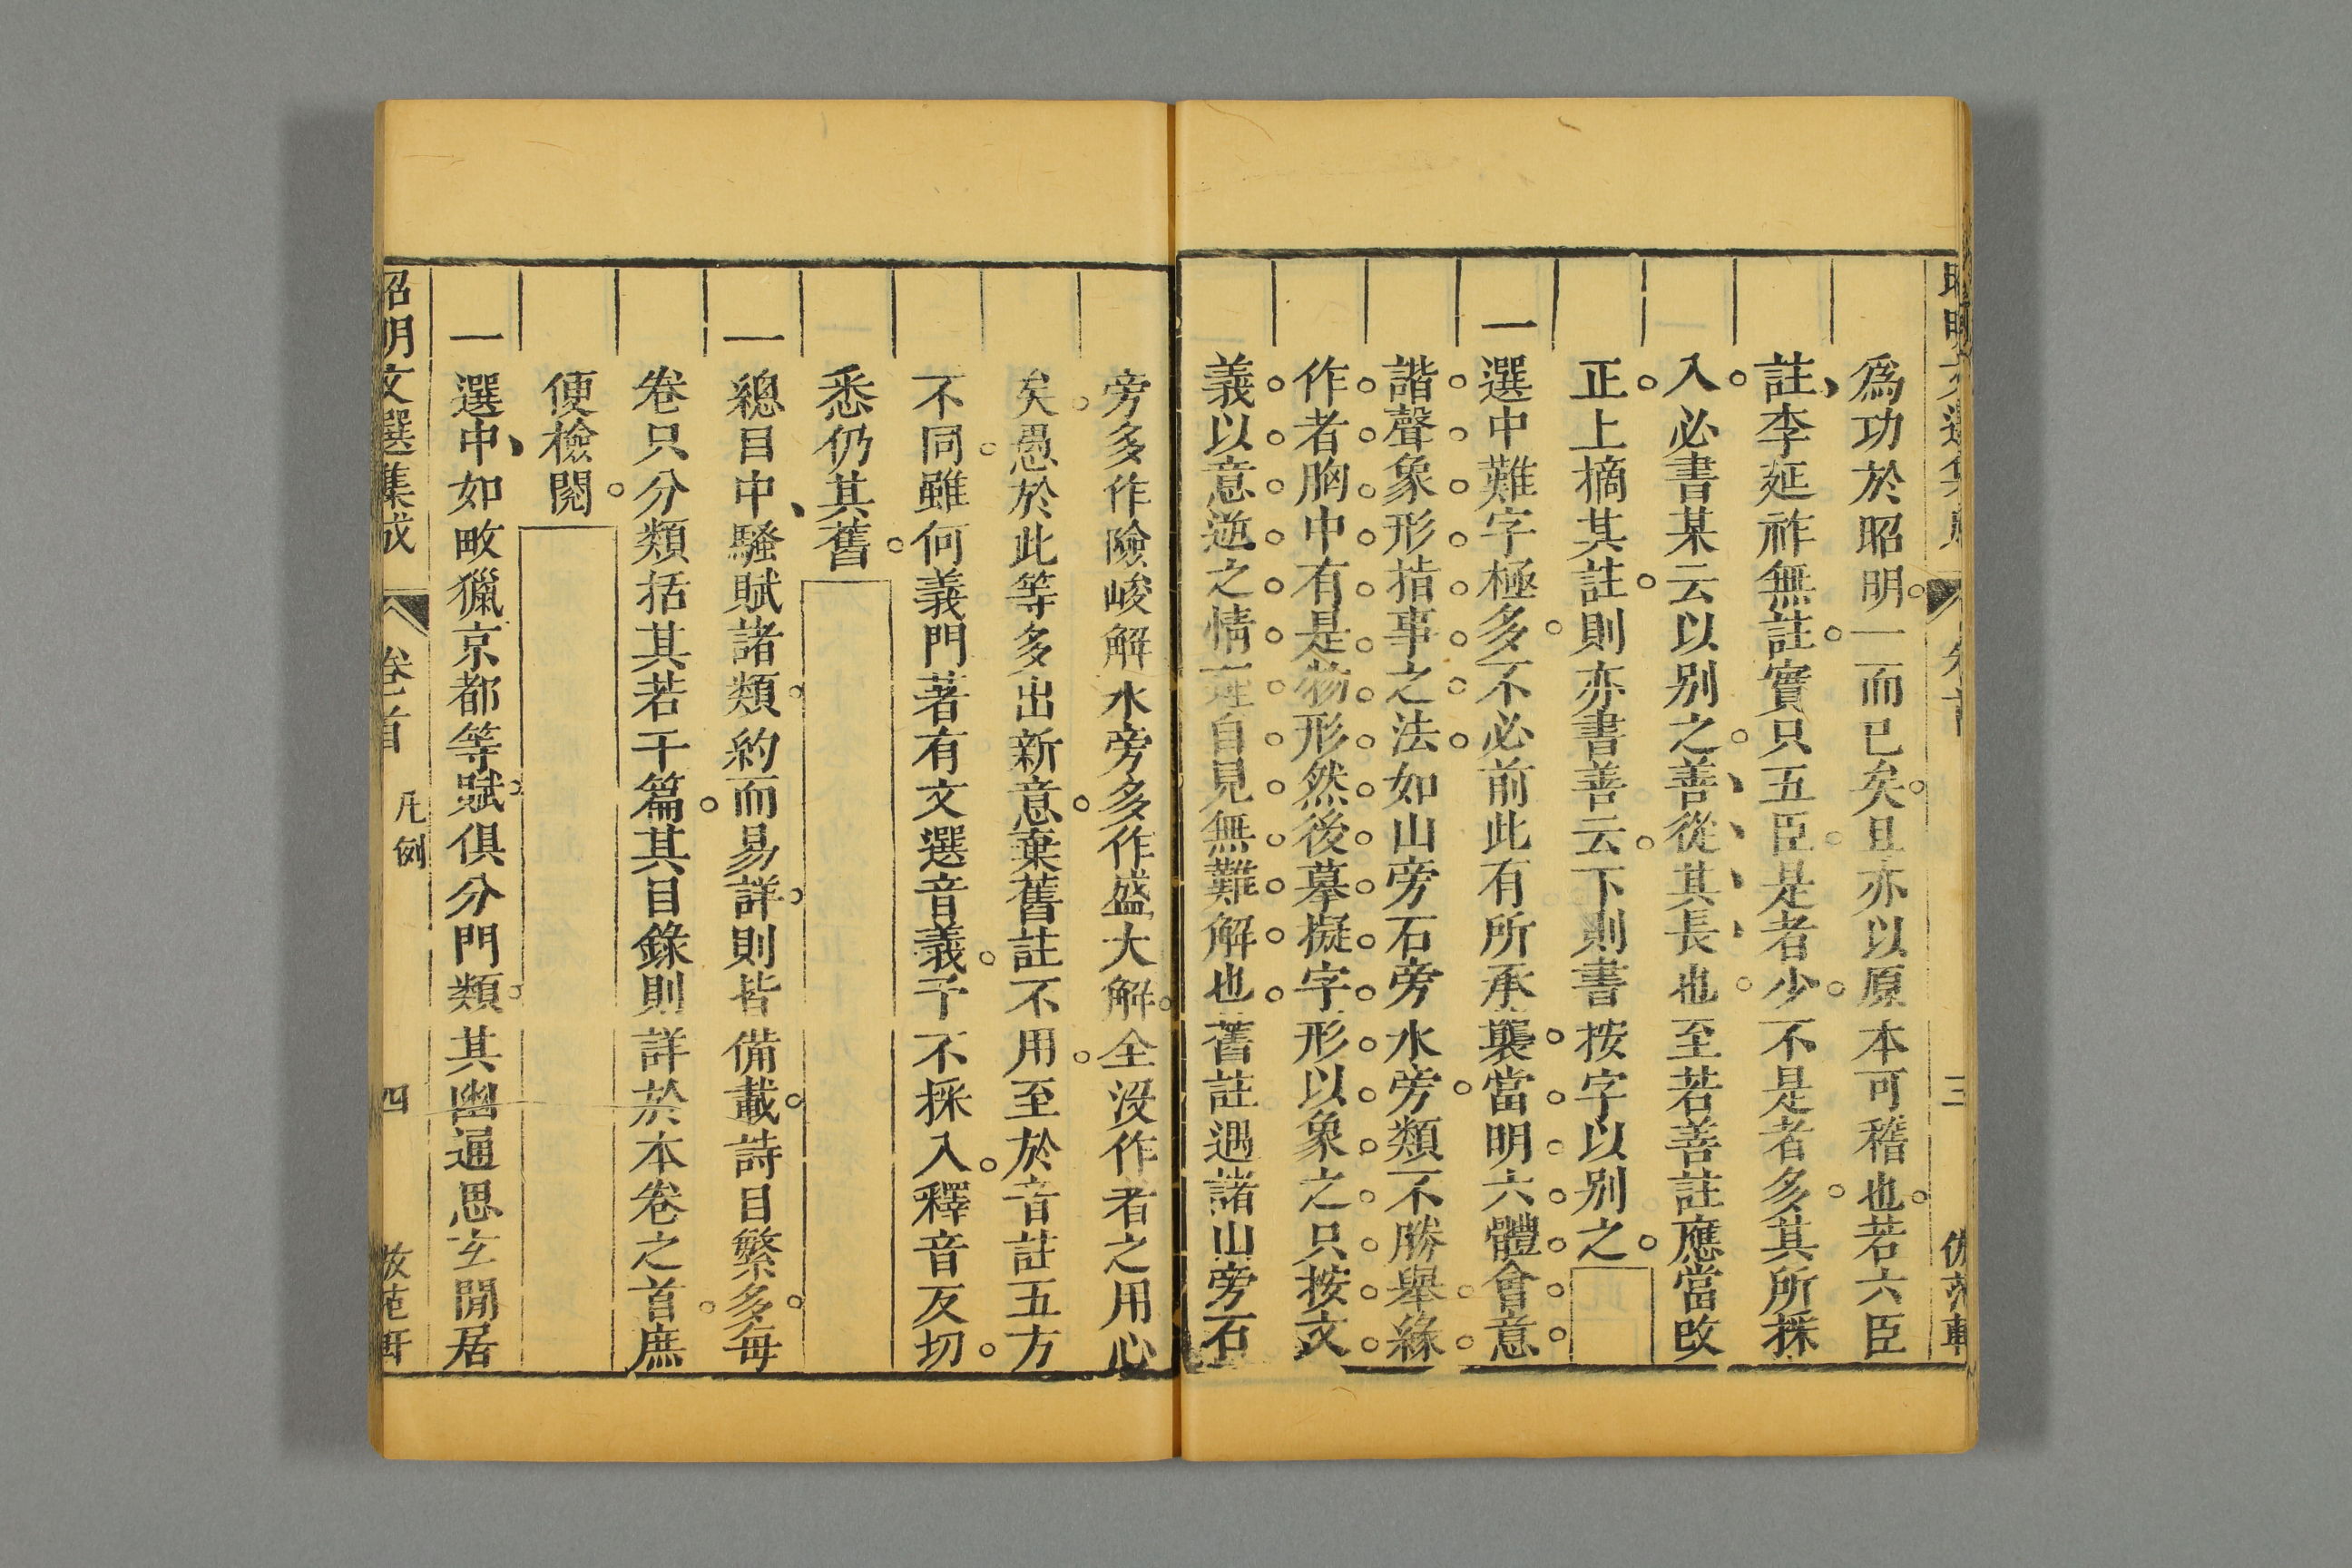 爲功於昭明一而已矣且亦以原本可稽也若六臣
註李延祚無註實只五臣是者少不是者多其所採
入必書某云以别之善從其長也至若善註應當改
正上摘其註則亦書善云下則書按字以别之
一選中難字極多不必前此有所承襲當明六體會意
諧聲象形指事之法如山旁石旁水旁類不勝舉緣
作者胸中有是物形然後摹擬字形以象之只按文
義以意逆之情自見無難解也舊註遇諸山旁石
旁多作險峻解水旁多作盛大解全没作者之用心
矣愚於此等多出新意棄舊註不用至於音註五方
不同雖何義門著有文選音義予不採入釋音反切
悉仍其舊
一總目中騷賦諸類約而易詳則皆備載詩目繁多每
卷只分類括其若干篇其目錄則詳於本卷之首庶
便檢閱
一選中如畋獵京都等賦俱分門類其幽通思玄閒居
昭明文選集成 卷首 凡例 四